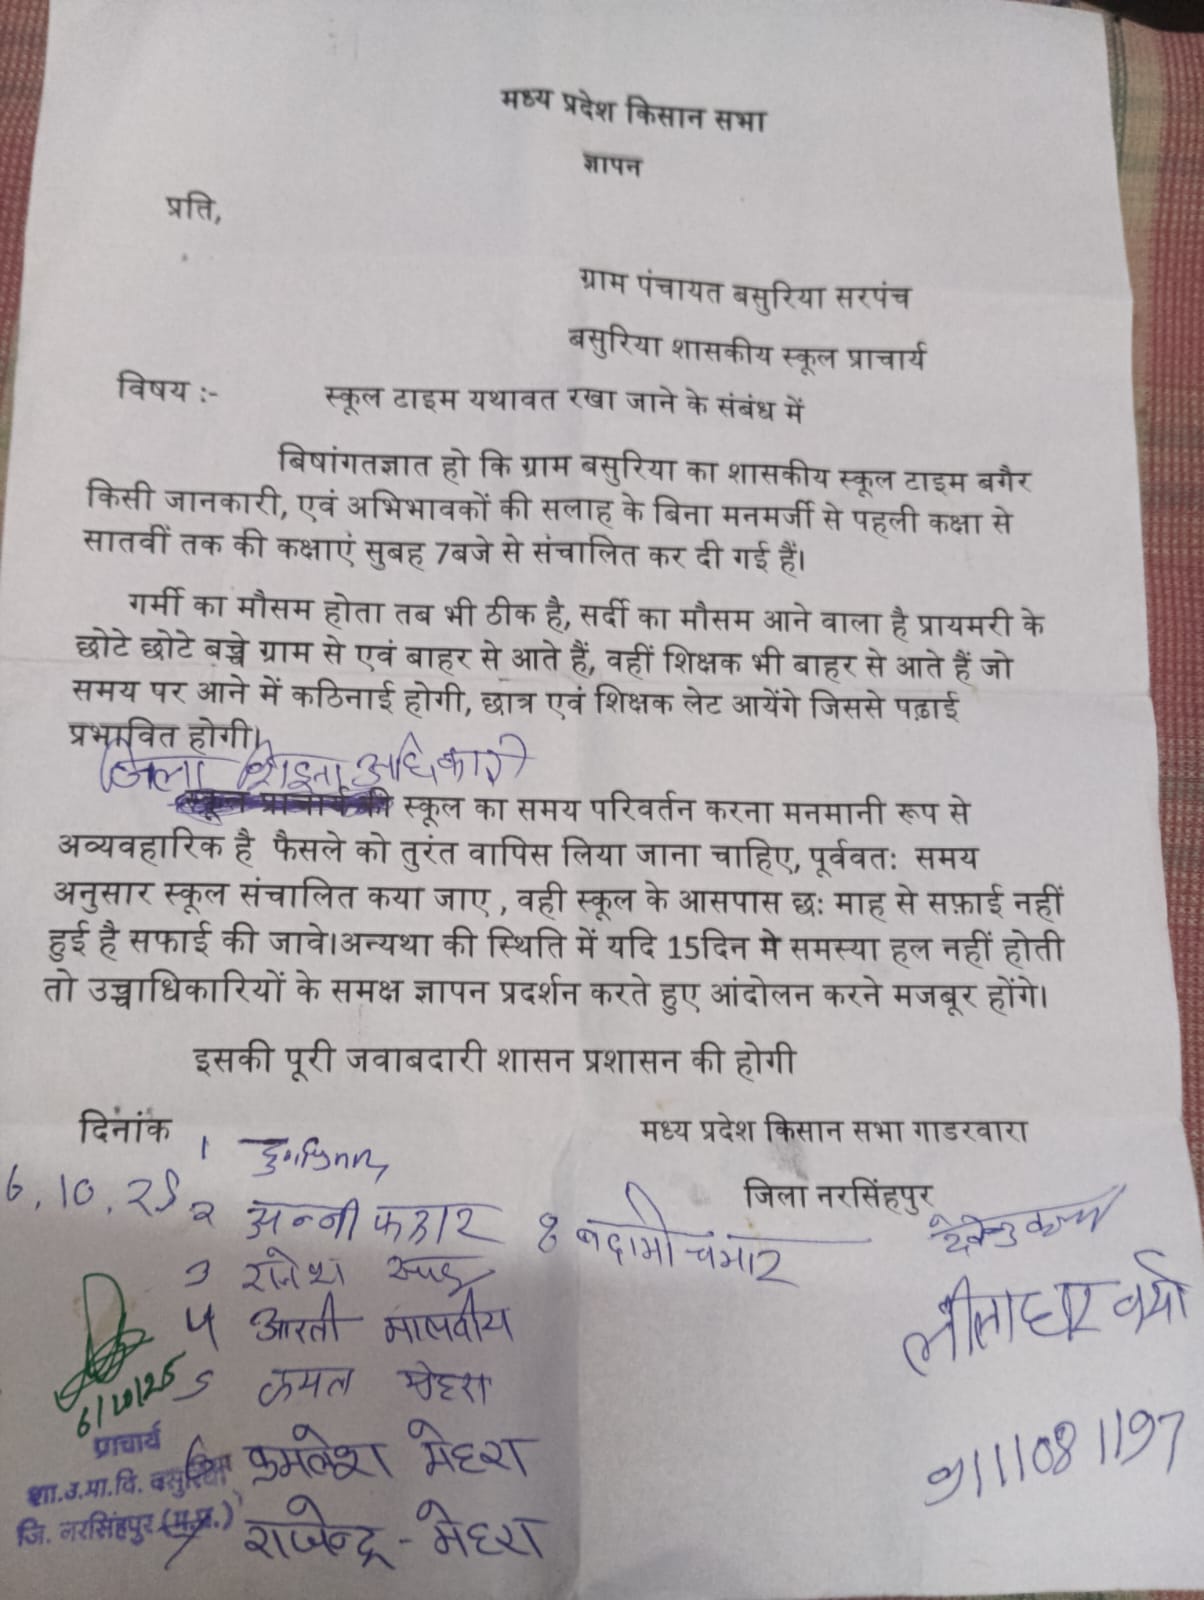 मध्य प्रदेश किसान सभा
ज्ञापन
प्रति,
ग्राम पंचायत बसुरिया सरपंच
बसुरिया शासकीय स्कूल प्राचार्य
विषय :- स्कूल टाइम यथावत रखा जाने के संबंध में
बिषांगतज्ञात हो कि ग्राम बसुरिया का शासकीय स्कूल टाइम बगैर
किसी जानकारी, एवं अभिभावकों की सलाह के बिना मनमर्जी से पहली कक्षा से
सातवीं तक की कक्षाएं सुबह 7बजे से संचालित कर दी गई हैं।
गर्मी का मौसम होता तब भी ठीक है, सर्दी का मौसम आने वाला है प्रायमरी के
छोटे छोटे बच्चे ग्राम से एवं बाहर से आते हैं, वहीं शिक्षक भी बाहर से आते हैं जो
समय पर आने में कठिनाई होगी, छात्र एवं शिक्षक लेट आयेंगे जिससे पढ़ाई
प्रभावित होगी।
जिला शिक्षा अधिकारी
स्कूल प्राचार्य की स्कूल का समय परिवर्तन करना मनमानी रूप से
अव्यवहारिक है फैसले को तुरंत वापिस लिया जाना चाहिए, पूर्ववतः समय
अनुसार स्कूल संचालित कया जाए , वही स्कूल के आसपास छः माह से सफ़ाई नहीं
हुई है सफाई की जावे।अन्यथा की स्थिति में यदि 15दिन मे समस्या हल नहीं होती
तो उच्चाधिकारियों के समक्ष ज्ञापन प्रदर्शन करते हुए आंदोलन करने मजबूर होंगे।
इसकी पूरी जवाबदारी शासन प्रशासन की होगी
दिनांक मध्य प्रदेश किसान सभा गाडरवारा
6.10.25 जिला नरसिंहपुर
1
2 अन्नी कहार 8 बदामी चमार
3
4 आरती मालवीय लीलाधर वर्मा
6/10/25 5 कमल मेहरा
प्राचार्य 6 कमलेश मेहरा 9111081197
शा.उ.मा.वि. बसुरिया
जि. नरसिंहपुर (म.प्र.) 7 राजेन्द्र - मेहरा